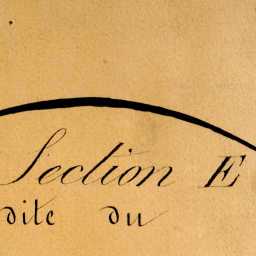 Section E
dite du